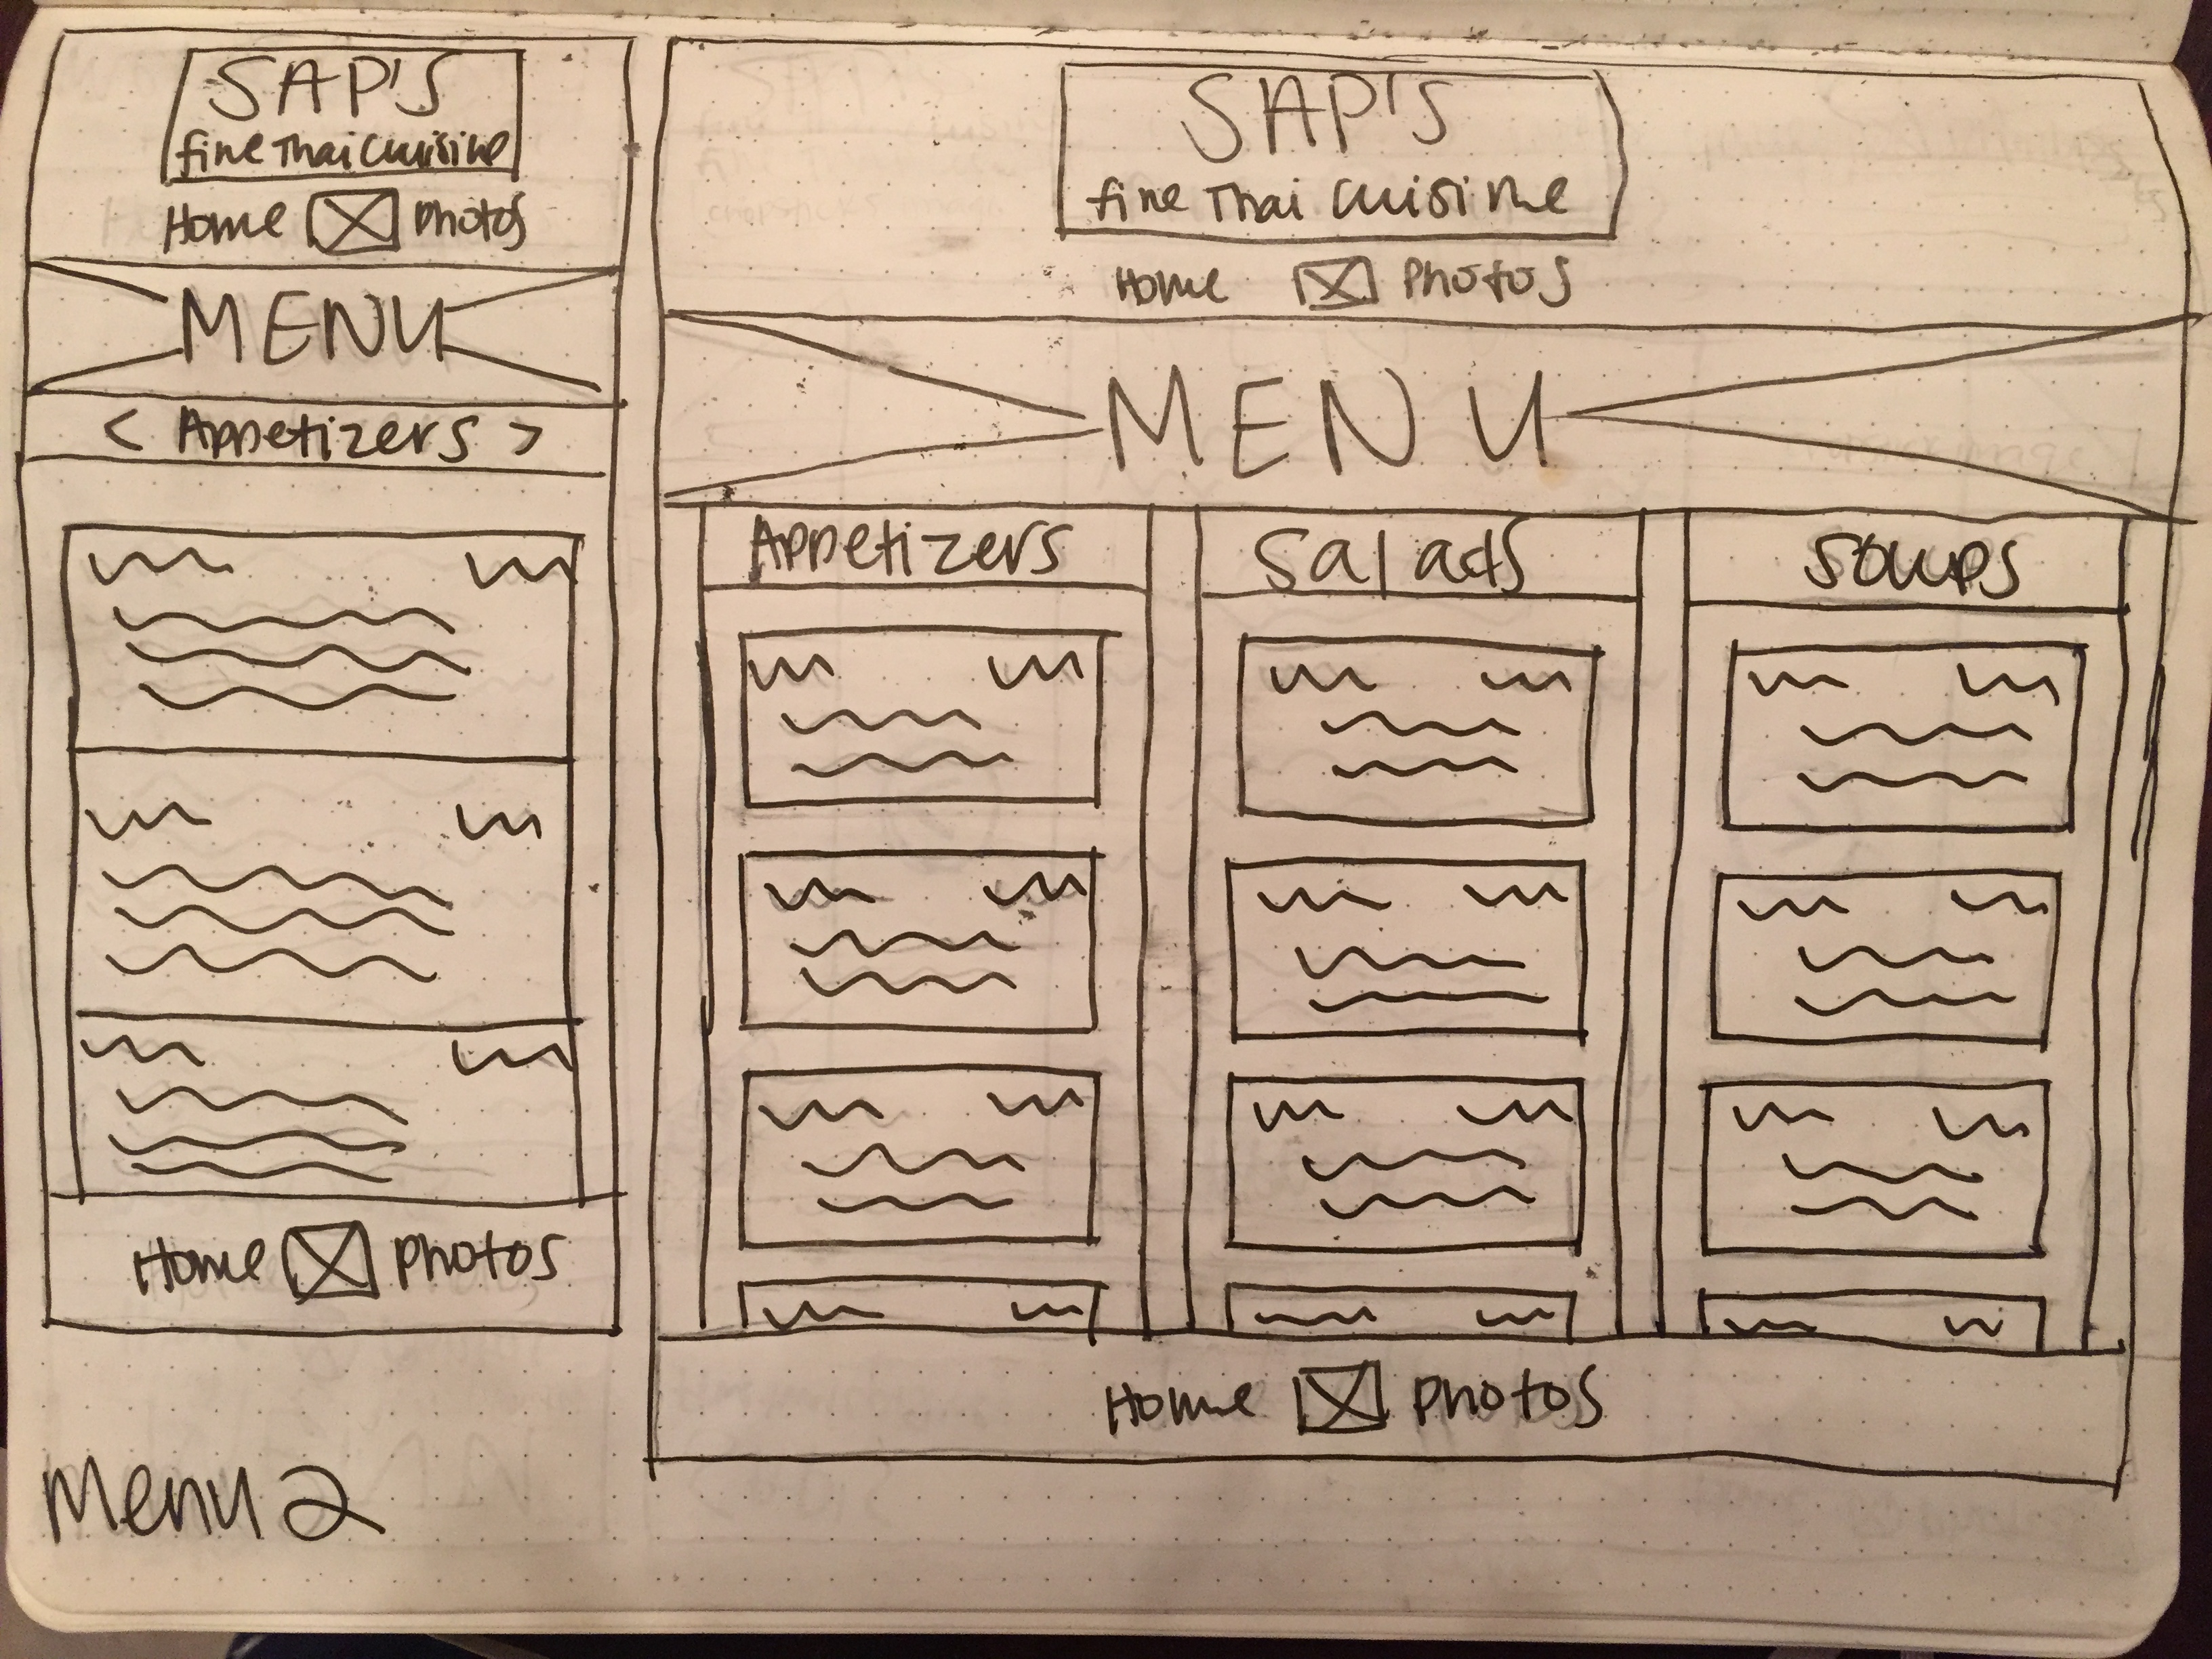 SAP'S
fine Thai Cuisine
Home Photos
MENU
< Appetizers >
Home Photos
SAP'S
fine Thai Cuisine
Home Photos
MENU
Appetizers
Salads
Soups
Home Photos
Menu 2